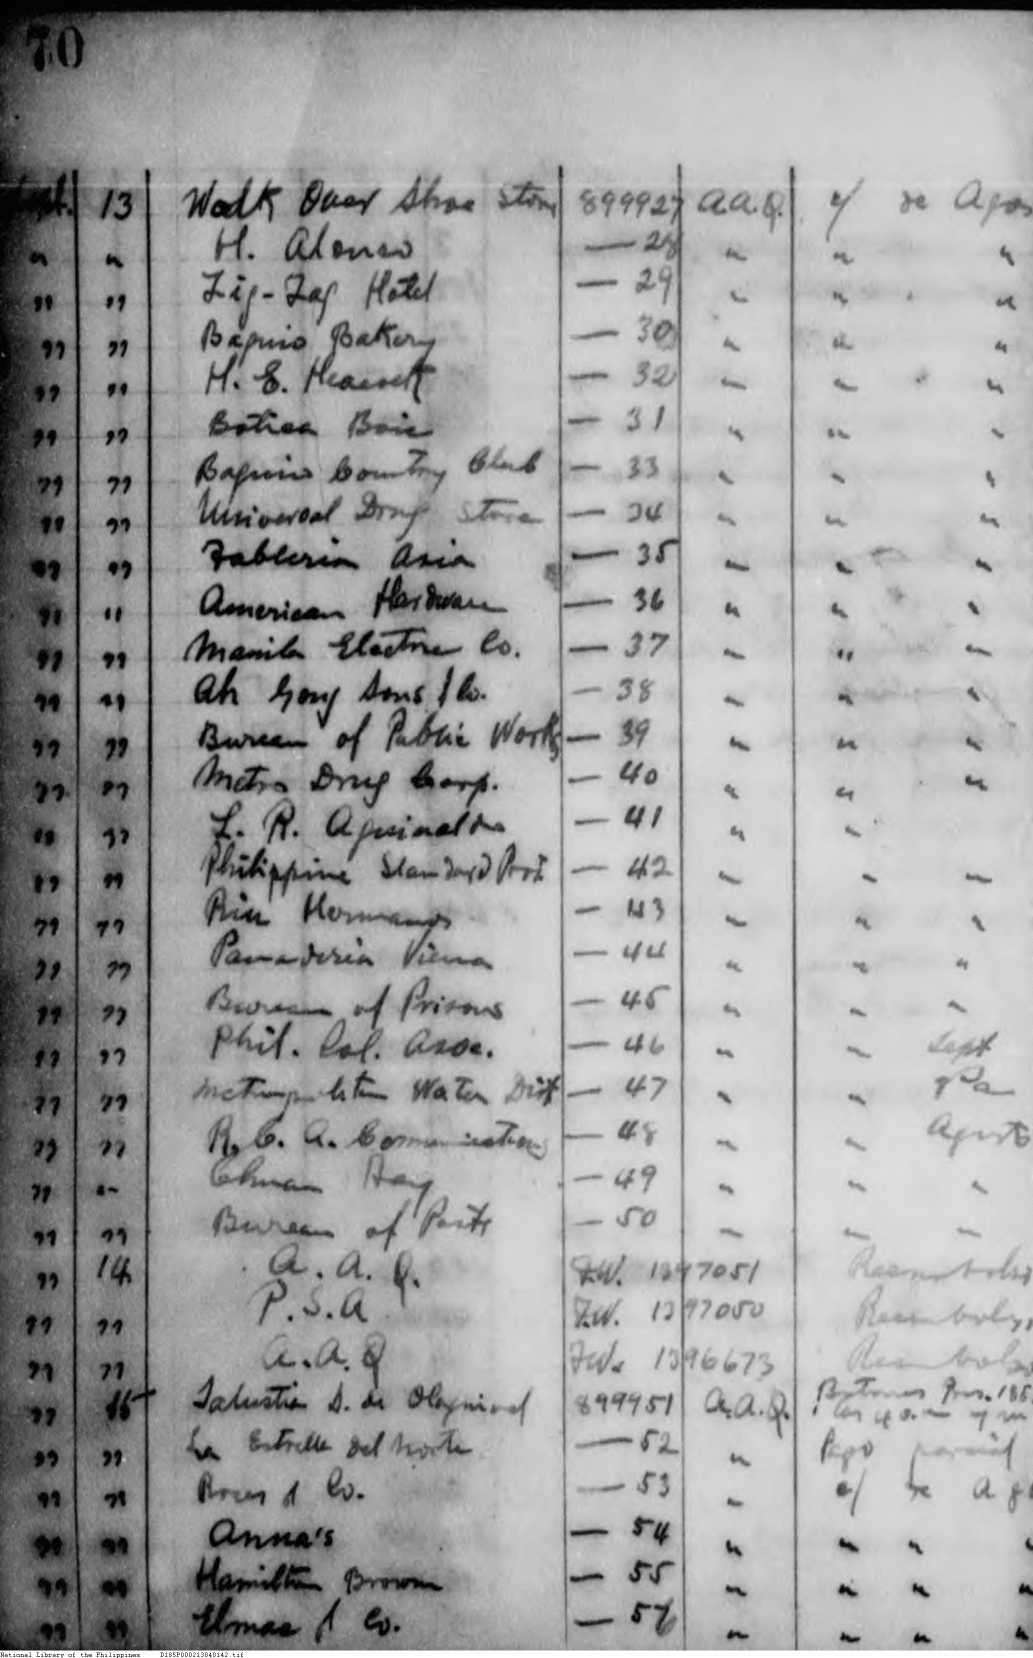 70
Sept. 13 Walk Over Shoe Store 899927 A.A.Q. c/ de Agos
" " H. Alonso — 28 " " "
" " Zig-Zag Hotel — 29 " " "
" " Baguio Bakery — 30 " " "
" " H. E. Heacock — 32 " " "
" " Botica Boie — 31 " " "
" " Baguio Country Club — 33 " " "
" " Universal Drug Store — 34 " " "
" " Tableria Asia — 35 " " "
" " American Hardware — 36 " " "
" " Manila Electric Co. — 37 " " "
" " Ah Gong Sons & Co. — 38 " " "
" " Bureau of Public Works — 39 " " "
" " Metro Drug Corp. — 40 " " "
" " L. R. Aguinaldo — 41 " "
" " Philippine Standard Prod — 42 " " "
" " Riu Hermanos — 43 " " "
" " Panaderia Viena — 44 " " "
" " Bureau of Prisons — 45 " " "
" " Phil. Col. Assc. — 46 " " Sept
" " Metropolitan Water Dist — 47 " "
" " R.C.A. Comunications — 48 " " Agosto
" " Hay — 49 " " "
" " Bureau of Posts — 50 " " "
" 14 A.A.Q. F.W. 1397051 Reembolso
" " P.S.A F.W. 1397050 Reembolso
" " A.A.Q F.W. 1396673 Reembolso
" 15 Salustia D. de 899951 A.A.Q.
" " La Estrella del Norte — 52 " Pago parcial
" " Roces & Co. — 53 " c/ de Ag
" " Anna's — 54 " " " "
" " Hamilton Brown — 55 " " " "
" " Elmac & Co. — 56 " " " "
National Library of the Philippines D185P000213040142.tif